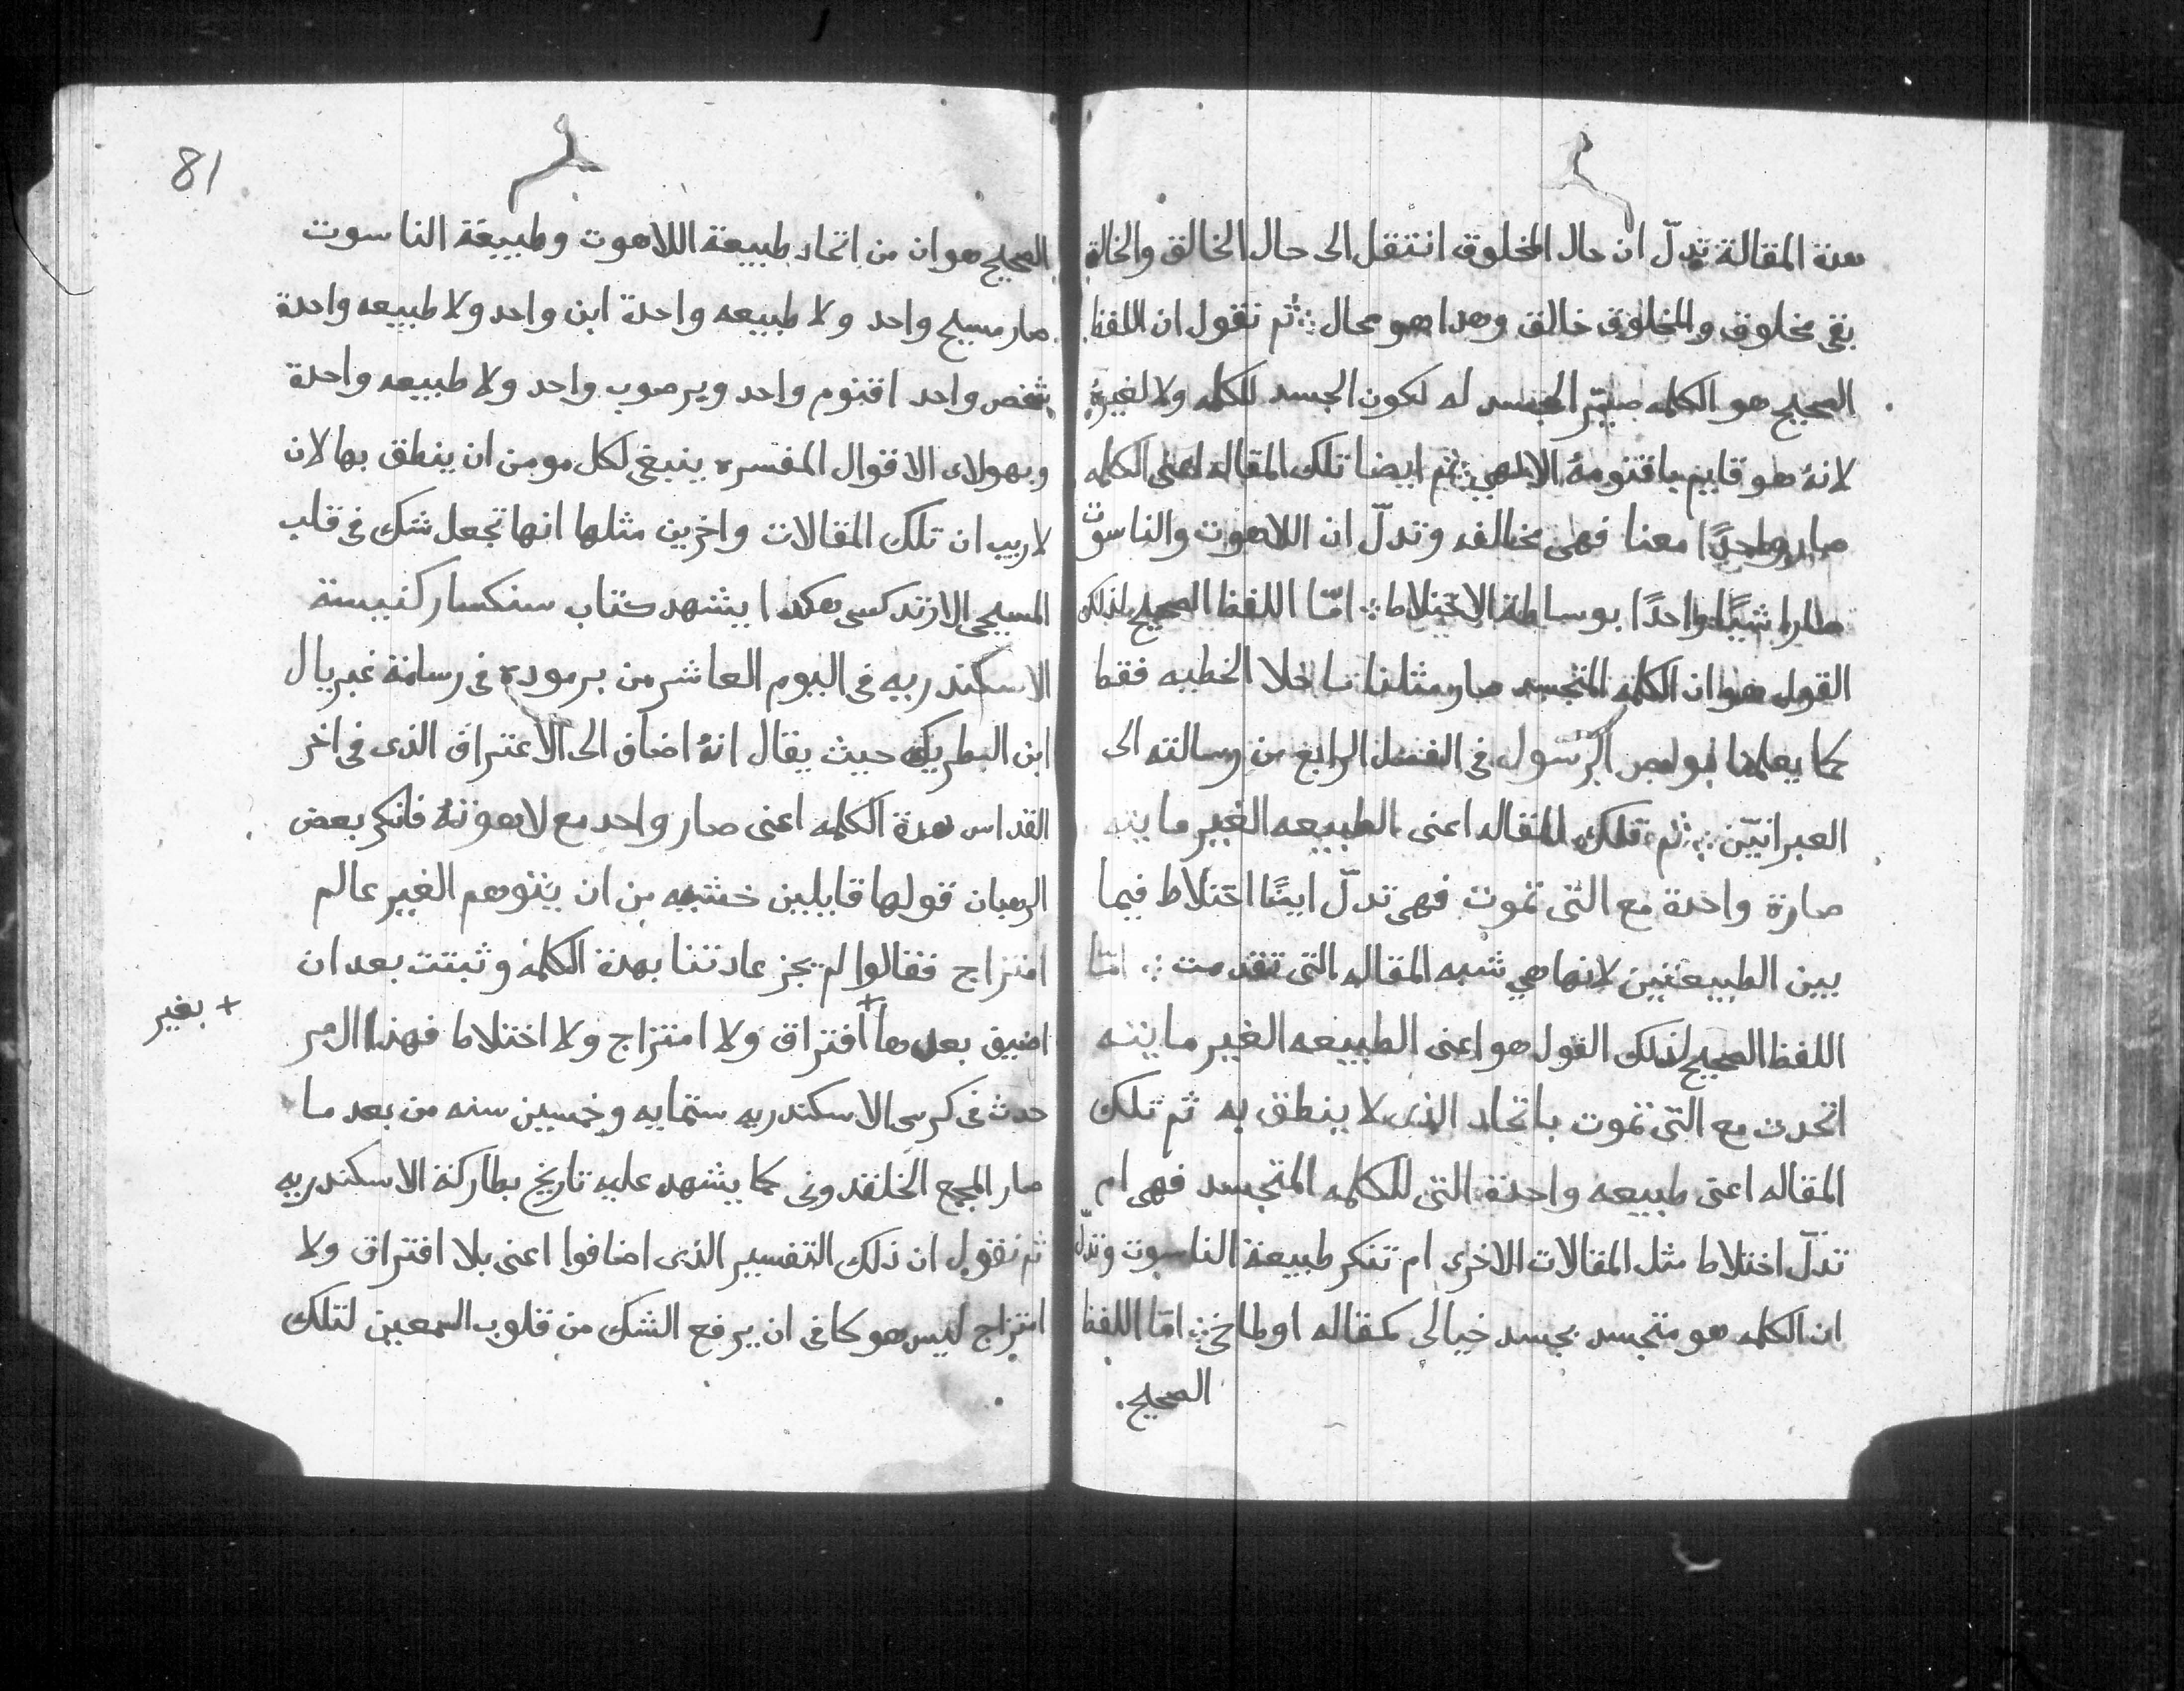 هدة المقالة تدلّ ان حال المخلوق انتقل الى حال الخالق والخالق
بقى مخلوق والمخلوق خالق وهدا هو محال ؛ ثم نقول ان اللفظ
الصحيح هو الكلمه صيّر الجسد له لكون الجسد للكلمه ولا لغيرهُ
لانهُ هو قايم باقنومهُ الالهي ؛ ثم ايضا تلك المقاله اعنى الكلمه
صار واحدًا معنا فهى مخالفه وتدلّ ان اللاهوت والناسوت
صارا شيًا واحدًا بوساطة الاختلاط ؛ امّا اللفظ الصحيح لذلك
القول هو ان الكلمه المتجسد صار مثلنا ما خلا الخطيه فقط
كما يعلمنا بولص الرّسول فى الفصل الرابع من رسالته الى
العبرانيّن ؛ ثم تلك المقاله اعنى الطبيعه الغير مايته
صارة واحدة مع التى تموت فهى تدلّ ايضًا اختلاط فيما
بين الطبيعتين لانها هي شبه المقاله التى تقدمت ؛ امّا
اللفظ الصحيح لذلك القول هو اعنى الطبيعه الغير مايته
اتحدت مع التى تموت باتحاد الذى لا ينطق به ثم تلك
المقاله اعنى طبيعه واحدة التى للكلمه المتجسد فهى ام
تدلّ اختلاط مثل المقالات الاخرى ام تنكر طبيعة الناسوت وتدلّ
ان الكلمه هو متجسد بجسد خيالى كمقاله اوطاخى ؛ امّا اللفظ
الصحيح
81
الصحيح هو ان من اتحاد طبيعة اللاهوت وطبيعة الناسوت
صار مسيح واحد ولا طبيعه واحدة ابن واحد ولا طبيعه واحدة
شخص واحد اقنوم واحد وبرصوب واحد ولا طبيعه واحدة
وبهولاى الاقوال المفسره ينبغى لكل مومن ان ينطق بها لان
لاريب ان تلك المقالات واخرين مثلها انها تجعل شك فى قلب
المسيحى الارتدكسى هكدا يشهد كتاب سنكسار كنيسة
الاسكندريه فى اليوم العاشر من برموده فى رسامة غبريال
ابن البطريك حيث يقال انهُ اضاف الى الاعتراف الذى فى اخر
القداس هدة الكلمه اعنى صار واحد مع لاهوتهُ فانكر بعض
الرهبان قولها قايلين خشيه من ان يتوهم الغير عالم
امتزاج فقالوا لم يجز عادتنا بهدة الكلمه وثبتت بعد ان
اضيق بعدها + افتراق ولا امتزاج ولا اختلاط فهذا الامر
+ بغير
حدث فى كرسى الاسكندريه ستمايه وخمسين سنه من بعد ما
صار المجمع الخلقدونى كما يشهد عليه تاريخ بطاركة الاسكندريه
ثم نقول ان ذلك التفسير الذى اضافوا اعنى بلا افتراق ولا
امتزاج ليس هو كافى ان يرفع الشك من قلوب السمعين لتلك